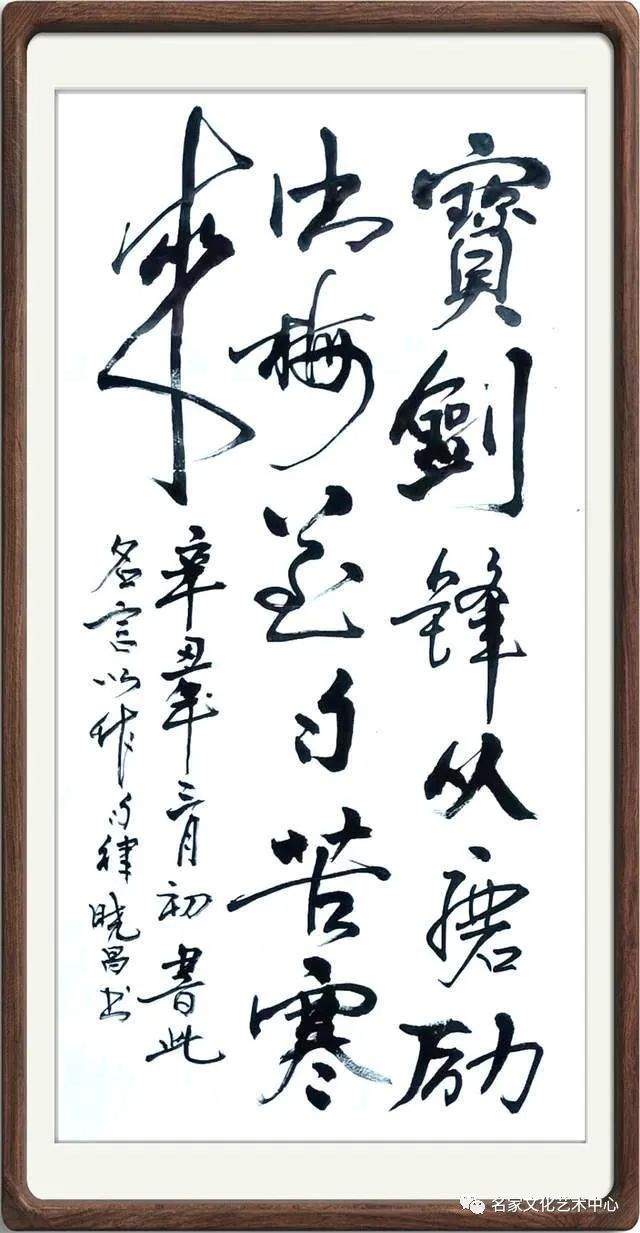 寶劍鋒从磨励
出梅花自苦寒
来
辛丑年三月初書此
名言以作自律曉昌书
名家文化艺术中心